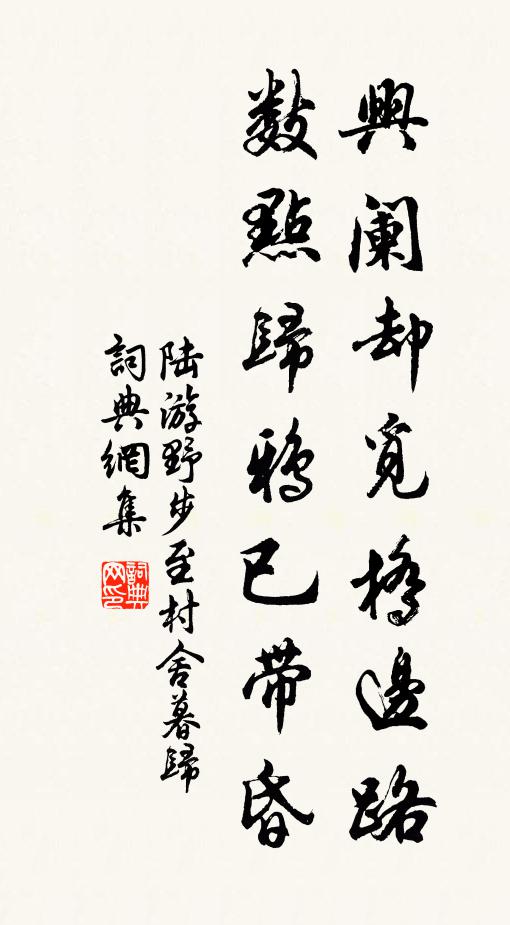 興阑却覓橋邊路
数點歸鴉已帶昏
陆游野步至村舍暮歸
詞典網集
詞典网印